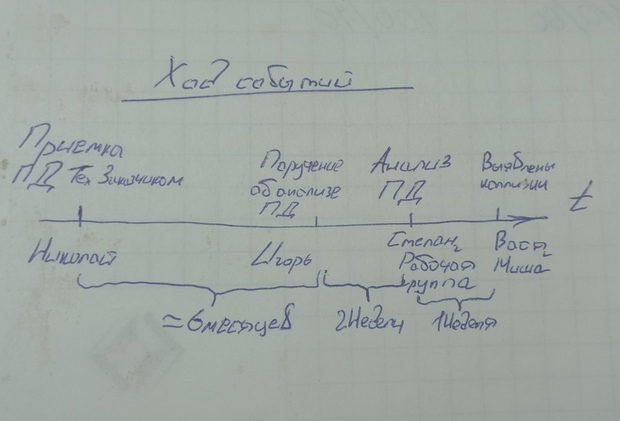 Ход событий
Приемка
ПД Тех Заказчиком
Поручение
об анализе
ПД
Анализ
ПД
Выявлены
коллизии
t
Николай
Игорь
Степан,
Рабочая
группа
Вася,
Миша
≈ 6 месяцев
2 Недели
1 Неделя